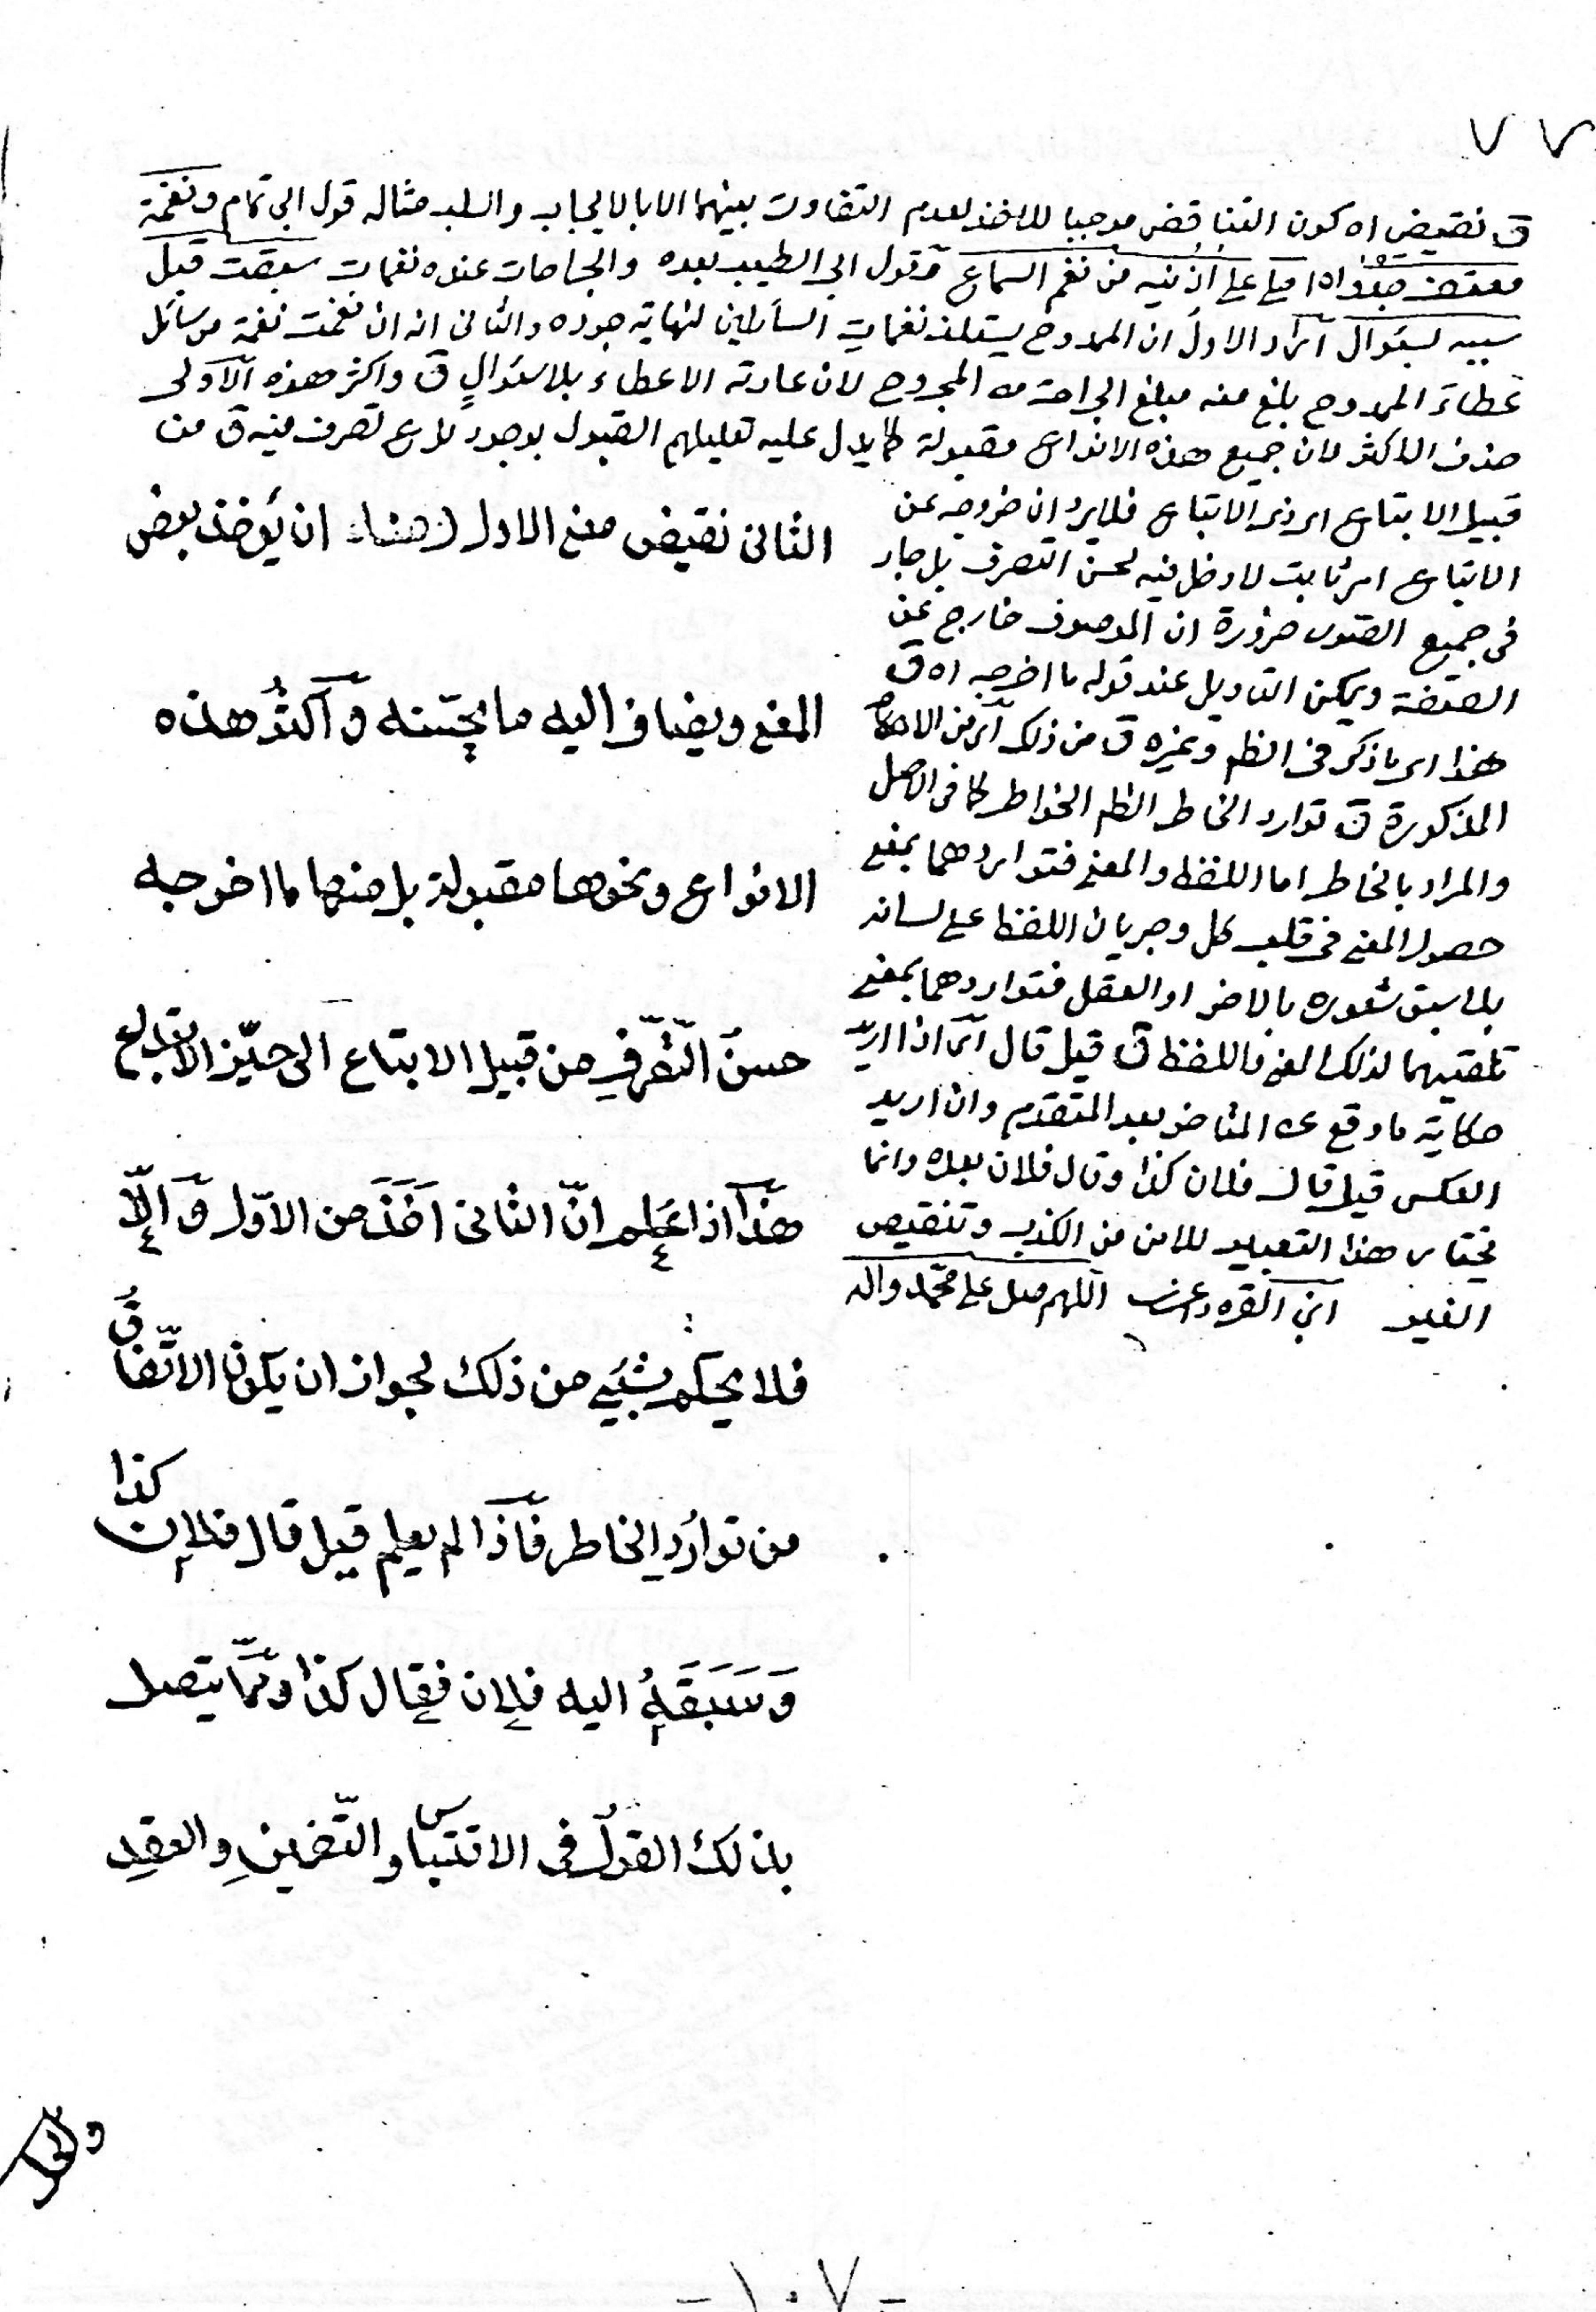 ٧٧
ق نقيض اه كون التناقض موجبا للاخذ لعدم التفاوت بينهما الا بالايجاب والسلب مثاله قول ابى تمام ونغمة
معتف على اذنيه من نغم السماع وقول ابى الطيب بعده والجراحات عنده نغمات سبقت قبل
سيبه بسؤال اراد الاول ان الممدوح يستلذ نغمات السائلين لنهاية جوده والثانى انه ان نغمت نغمة من سائل
عطاء الممدوح بلغ منه مبلغ الجراحة من المجروح لان عادته الاعطاء بلا سؤال ق واكثر هذه الاولى
حذف الاكثر لان جميع هذه الانواع مقبولة كما يدل عليه تعليلهم القبول بوجود نوع تصرف فيه ق من
قبيل الابتاع اى ذى الاتباع فلا يرد ان خروجه عن
الاتباع امر ثابت لا دخل فيه لحسن التصرف بل جار
فى جميع الصور ضرورة ان الموصوف خارج عن
الصفة ويمكن التاويل عند قوله ما اخرجه اه ق
هذا اى ما ذكر فى النظم وغيره ق من ذلك اى من الاحكام
المذكورة ق توارد الخاطر الخواطر كما فى الاصل
والمراد بالخاطر اما اللفظ والمعنى فتواردهما بمعنى
حصول المعنى فى قلب كل وجريان اللفظ على لسانه
بلا سبق شعوره بالاخر او العقل فتواردهما بمعنى
تلقيهما لذلك المعنى واللفظ ق قيل قال اى اذا اريد
حكاية ما وقع من المتاخر بعد المتقدم وان اريد
العكس قيل قال فلان كذا وقال فلان بعده وانما
يختار هذا التعبير للامن من الكذب وتنقيص
الغير ابن القره داغى اللهم صل على محمد واله
الثانى نقيض معنى الاول ان يؤخذ بعض
المعنى ويضاف اليه ما يحسّنه و اكثرُ هذه
الانواع ونحوها مقبولة بل منها ما اخرجه
حسنُ التّصرّفِ من قبيل الابتاع الى حيّز الابتداع
هذا اذا عُلم انّ الثانى اَخَذَ من الاوّل وَ اِلّا
فلا يحكم بشيء من ذلك لجواز ان يكون الاتّفاقُ
من توارُدِ الخاطر فاذا لم يعلم قيل قال فلان كذا
وَسَبَقَهُ اليه فلان فقال كذا وممّا يتصل
بذلك القولُ فى الاقتباس والتّضمينِ والعقدِ
والحل
-١٠٧-